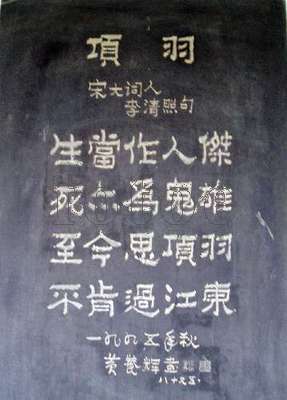 項羽
宋大词人
李清照句
生當作人傑
死亦為鬼雄
至今思項羽
不肯過江東
一九九五年秋
黄養輝書
八十又五